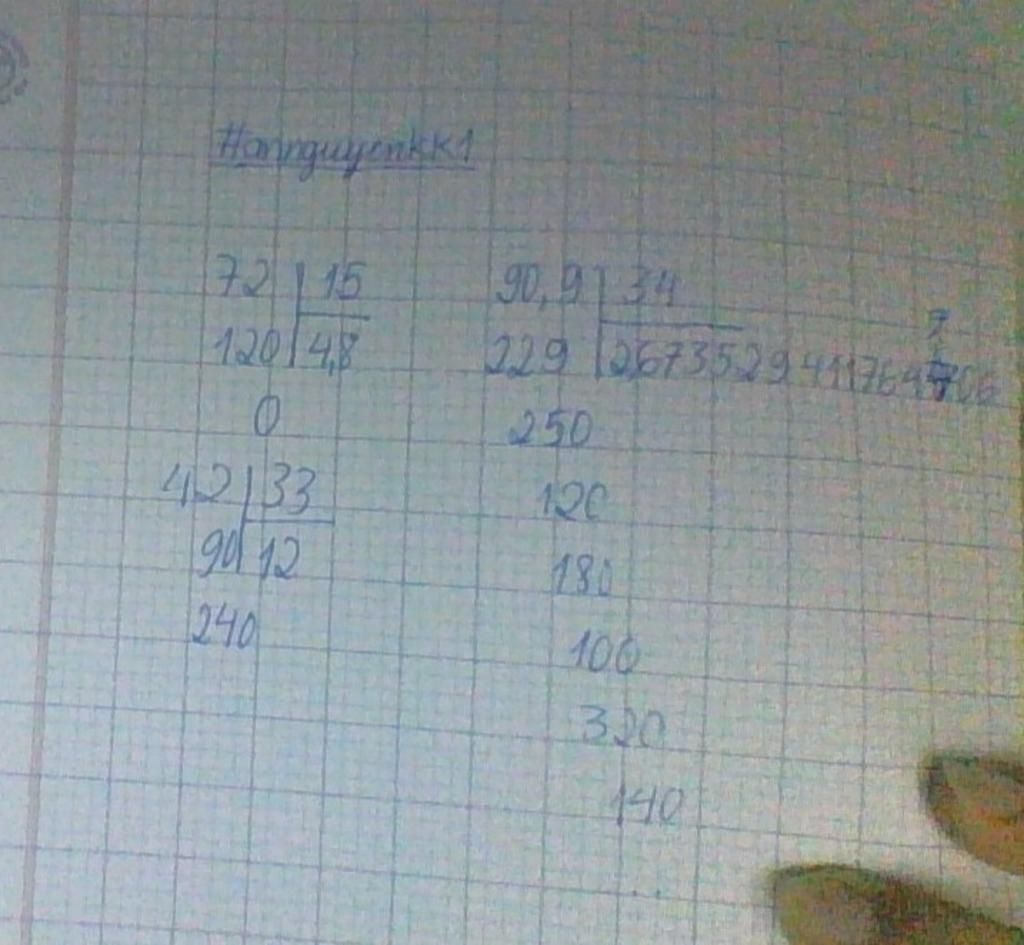 72 15
120 4,8
0
42 33
90 12
240
90,9 34
229 2,6735294117647
250
120
180
100
320
140